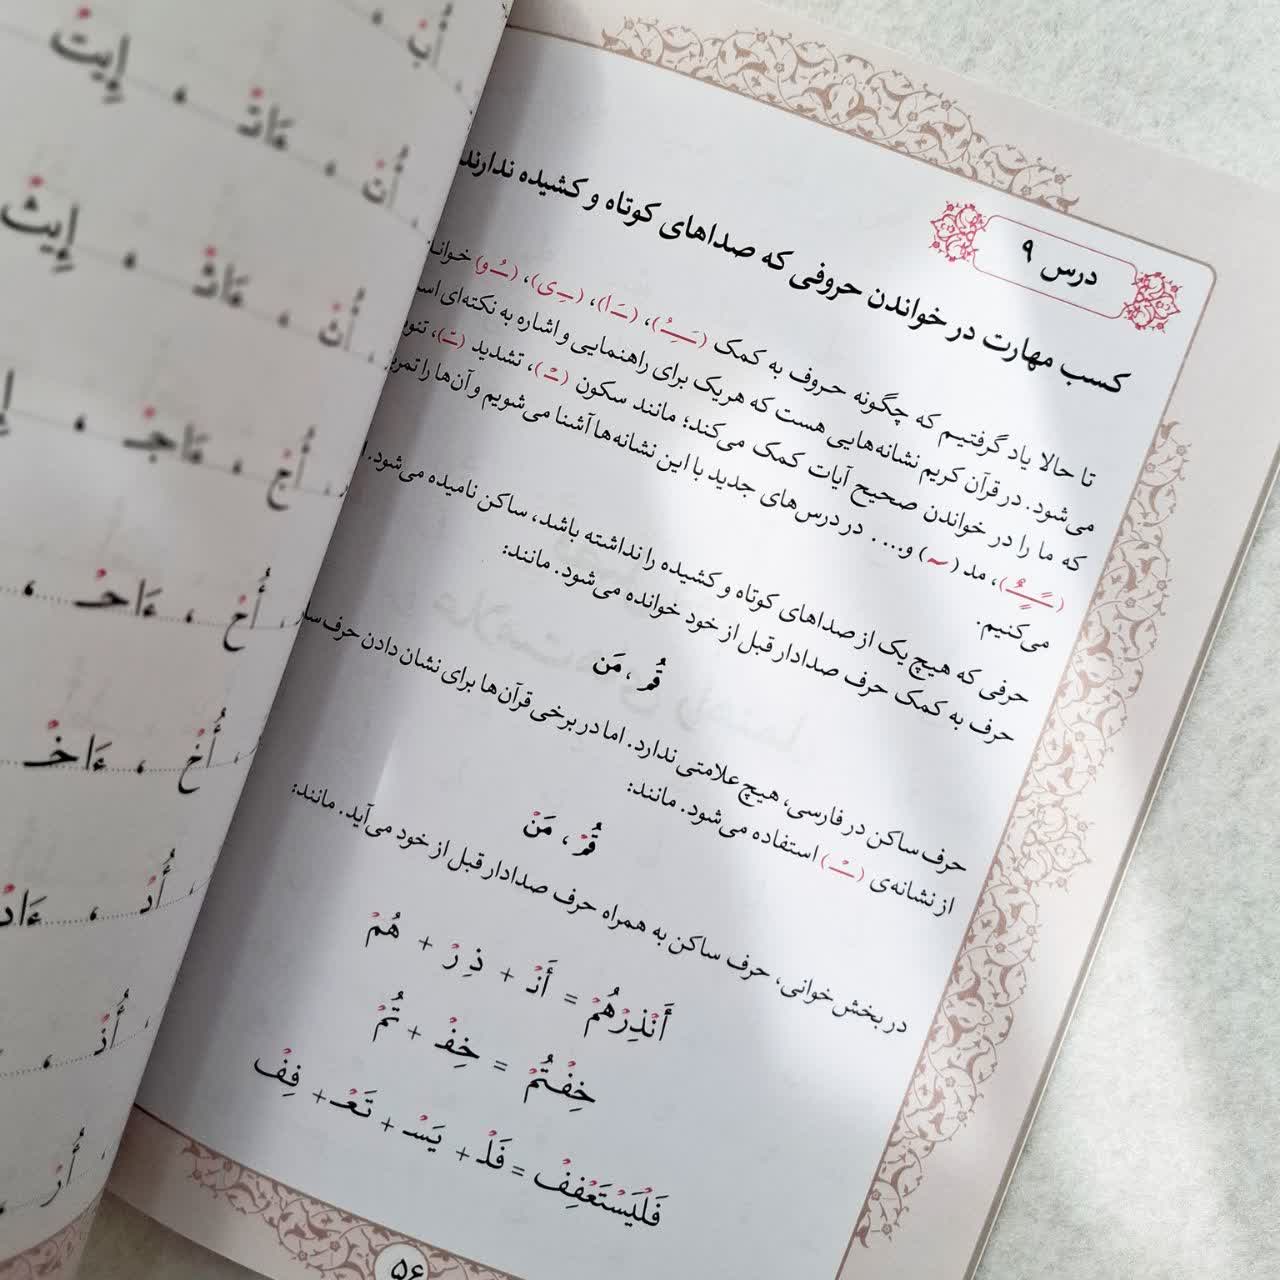 درس ۹
کسب مهارت در خواندن حروفی که صداهای کوتاه و کشیده ندارند
تا حالا یاد گرفتیم که چگونه حروف به کمک (ـَـِـُ)، (ـَـا)، (ـِـی)، (ـُـو)
می‌شود. در قرآن کریم نشانه‌هایی هست که هریک برای راهنمایی و اشاره به نکته‌ای
که ما را در خواندن صحیح آیات کمک می‌کند؛ مانند سکون (ـْـ)، تشدید (ـّـ)،
(ـًـٍـٌ)، مد (~) و.... در درس‌های جدید با این نشانه‌ها آشنا می‌شویم و آن‌ها را
می‌کنیم.
حرفی که هیچ یک از صداهای کوتاه و کشیده را نداشته باشد، ساکن نامیده می‌شود.
حرف به کمک حرف صدادار قبل از خود خوانده می‌شود. مانند:
قُم، مَن
حرف ساکن در فارسی، هیچ علامتی ندارد. اما در برخی قرآن‌ها برای نشان دادن
از نشانه‌ی (ـْـ) استفاده می‌شود. مانند:
قُمْ، مَنْ
در بخش خوانی، حرف ساکن به همراه حرف صدادار قبل از خود می‌آید. مانند:
أَنْذِرْهُمْ = أَنْـ + ذِرْ + هُمْ
خِفْتُمْ = خِفْـ + تُمْ
فَلْیَسْتَعْفِفْ = فَلْـ + یَسْـ + تَعْـ + فِفْ
۵۶
أُتْ ، ءَاتْ ، إِیتْ
أُثْ ، ءَاثْ ، إِیثْ
أُجْ ، ءَاجْ ،
أُحْ ، ءَاحْ ،
أُخْ ، ءَاخْ
أُدْ ، ءَادْ
أُذْ ،
أُرْ ،